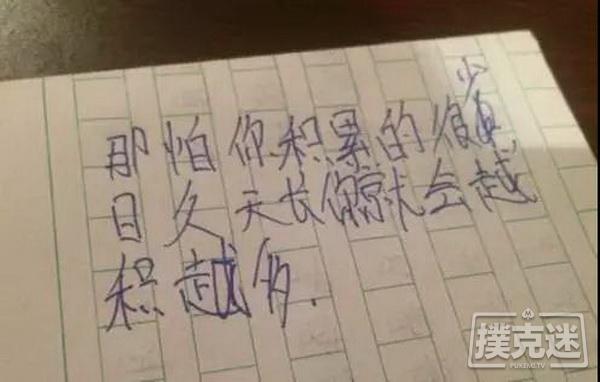 那怕你积累的很少,
日久天长你就会越
积越多.
撲克迷
PUKEMI.TV